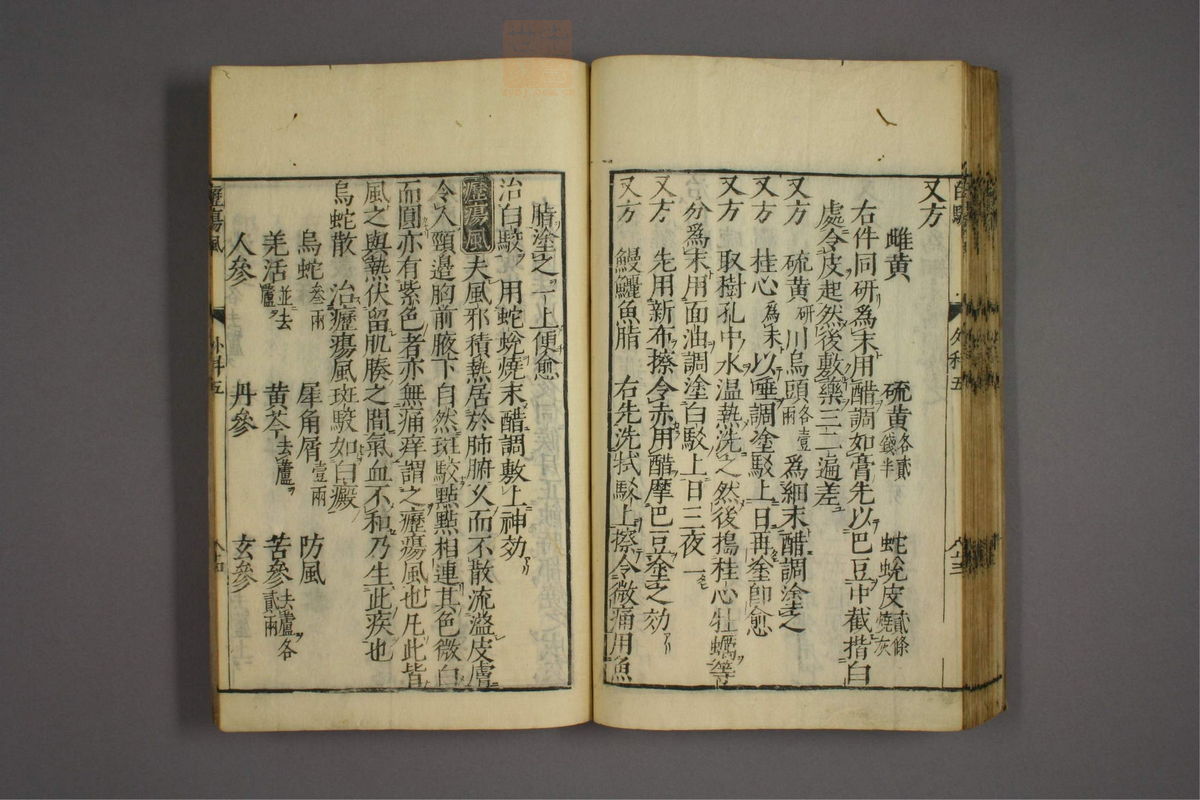 又方
雌黄　硫黄各貳錢半　蛇蛻皮貳條燒灰
右件同研爲末用醋調如膏先以巴豆中截揩白
處令皮起然後敷藥三二遍差
又方　硫黄研　川烏頭各壹兩　爲細末醋調塗之
又方　桂心爲末　以唾調塗駁上日再塗卽愈
又方　取樹孔中水温熱洗之然後搗桂心牡蠣等
分爲末用面油調塗白駁上日三夜一
又方　先用新布擦令赤用醋摩巴豆塗之効
又方　鰻鱺魚脂　右先洗拭駁上擦令微痛用魚
脂塗之一上便愈
治白駁　用蛇蛻燒末醋調敷上神効
癧瘍風　夫風邪積熱居於肺腑久而不散流溢皮膚
令人頸邊胸前腋下自然斑駁點點相連其色微白
而圓亦有紫色者亦無痛痒謂之癧瘍風也凡此皆
風之與熱伏留肌腠之間氣血不和乃生此疾也
烏蛇散　治癧瘍風斑駁如白癜
烏蛇叁兩　犀角屑壹兩　防風
羌活並去蘆　黄芩去蘆　苦參去蘆各貳兩
人參　丹參　玄參
癧瘍風　外科五
外科五